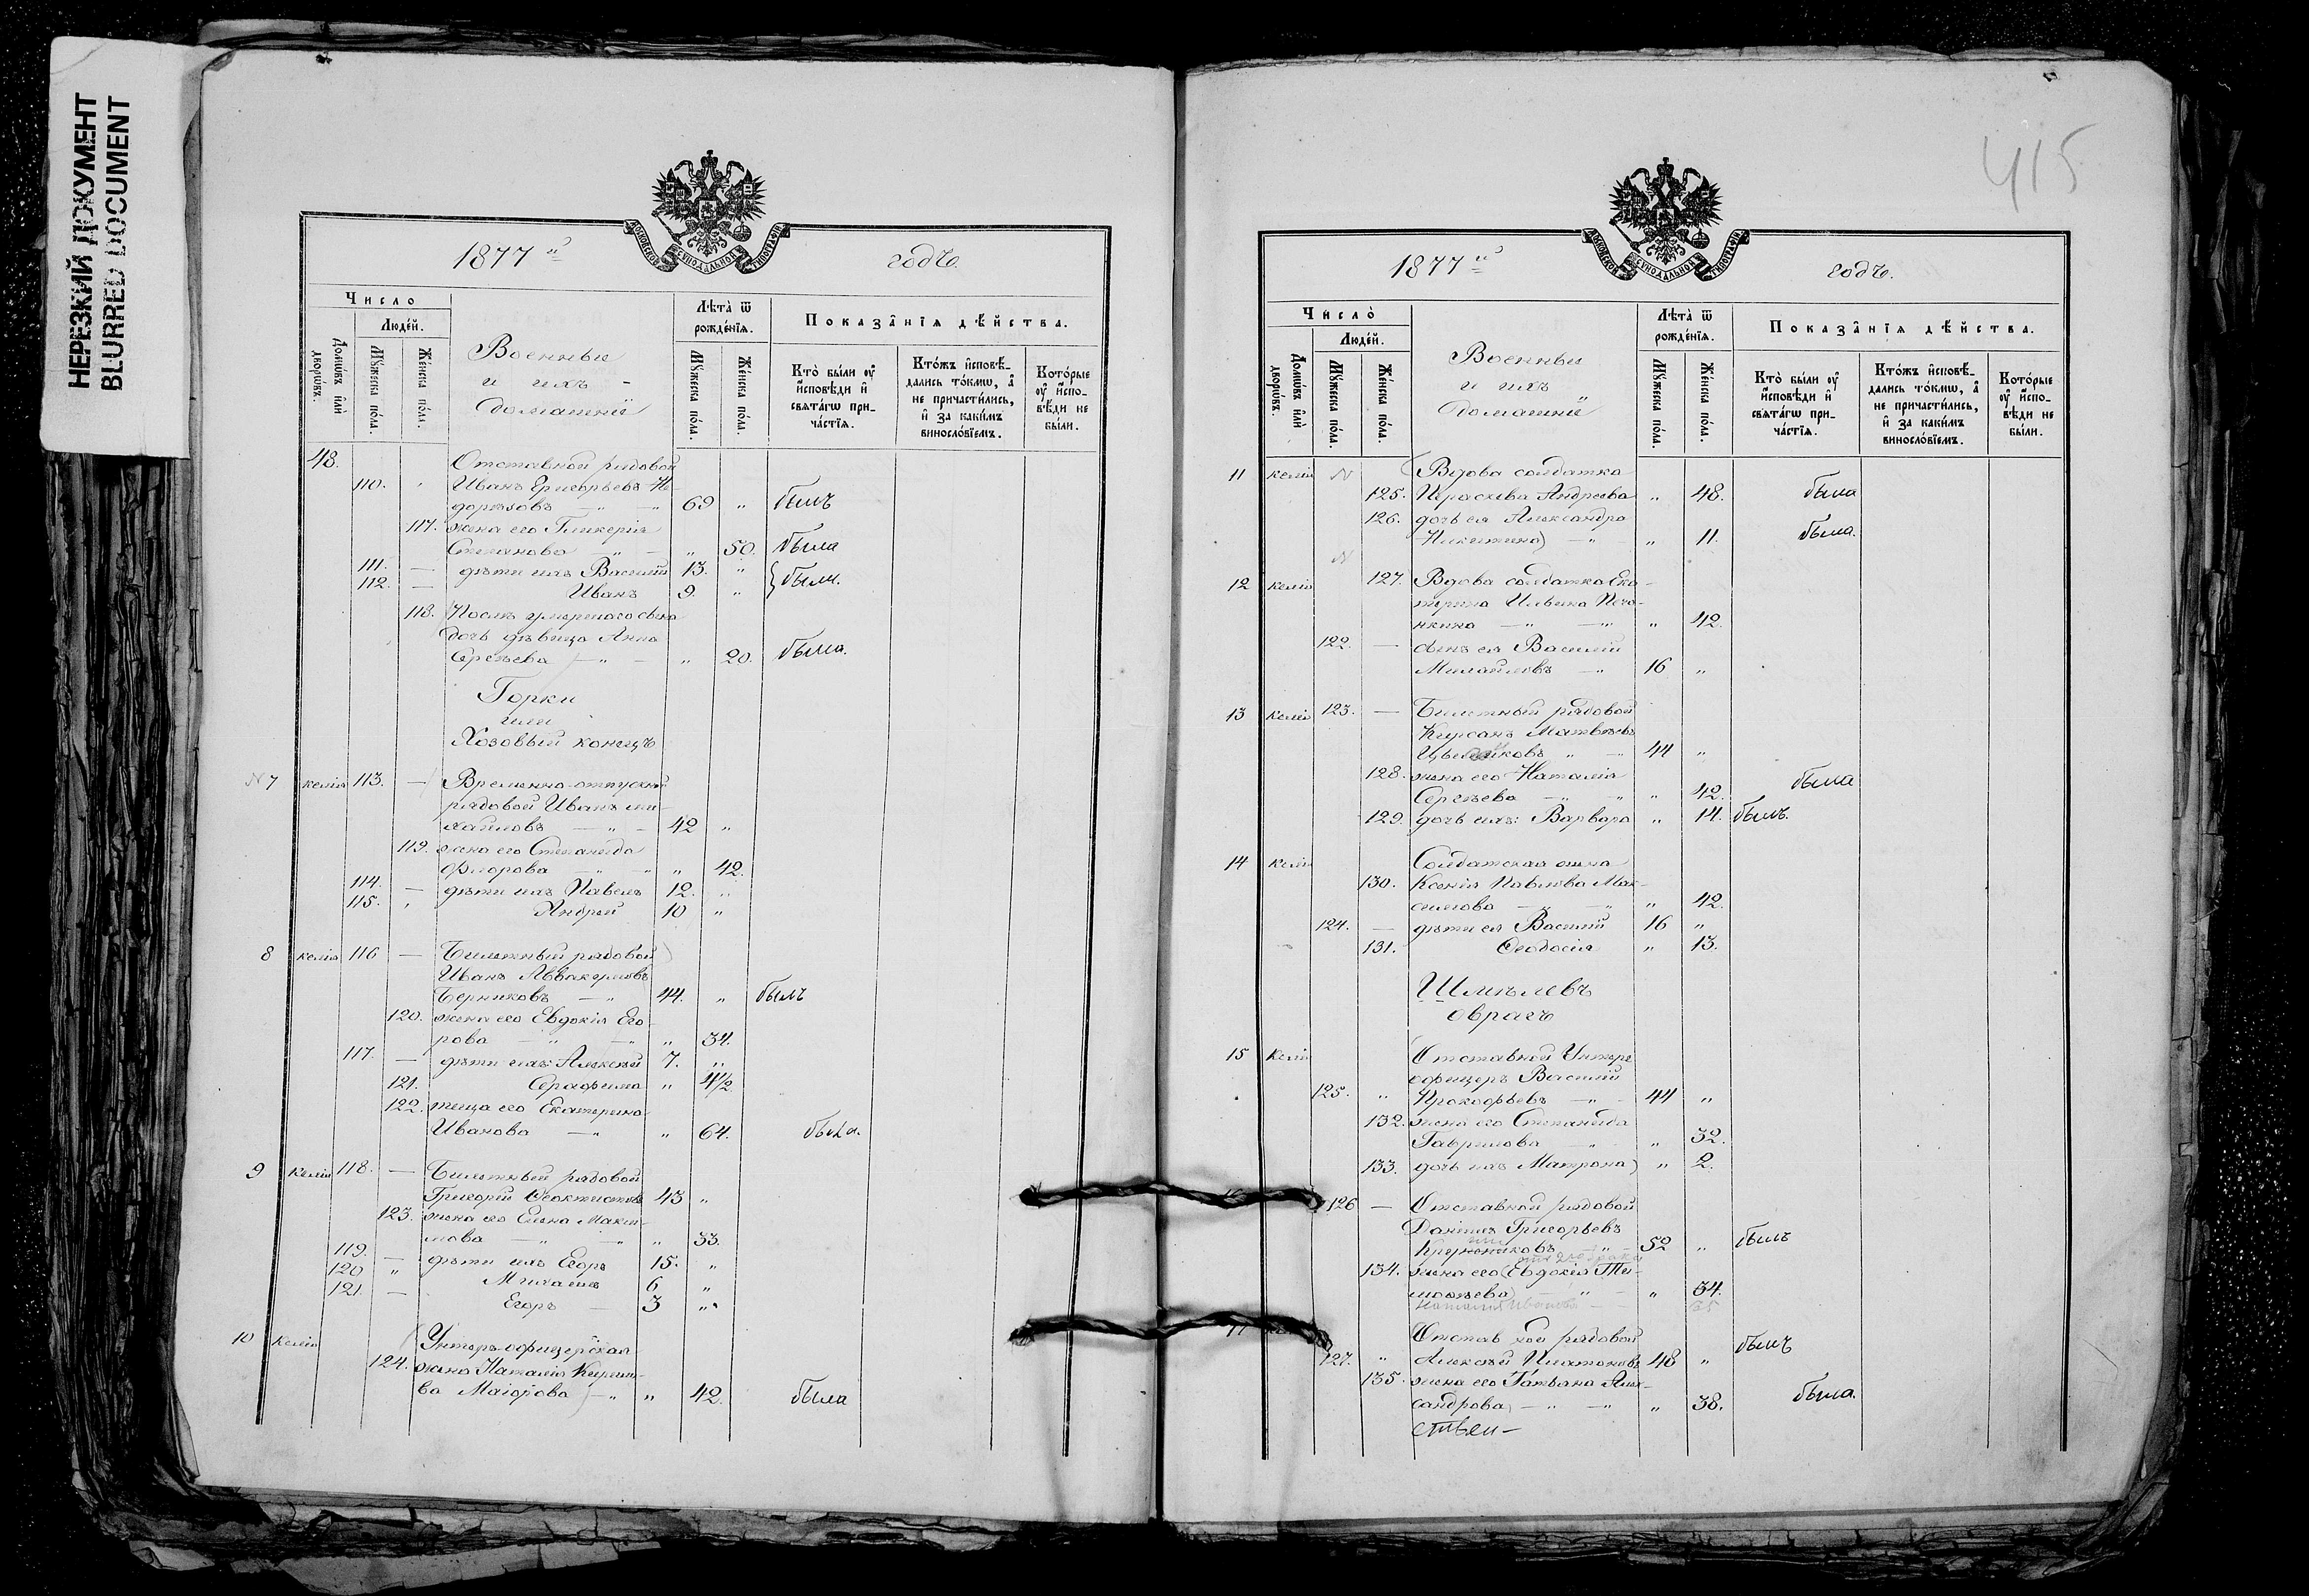 НЕРЕЗКИЙ ДОКУМЕНТ
BLURRED DOCUMENT
МОСКОВСКОЙ СѴНОДАЛЬНОЙ ТИПОГРАФІИ
1877 й годъ.
Число
Людей.
Домѡвъ или дворѡвъ.
Мꙋжеска пола.
Женска пола.
Военные
и ихъ -
домашніе
Лѣта ѿ рожденія.
Мꙋжеска пола.
Женска пола.
Показанія дѣйства.
Кто были оу исповѣди и свѧтагѡ причастія.
Ктожъ исповѣдались токмѡ, а не причастились, и за какимъ винословіемъ.
Которые оу исповѣди не были.
48. Отставной рядовой
110. Иванъ Григорьевъ
69 " былъ
117. жена его Гликерія
Степанова — " — " 50. была
111. — дѣти ихъ Василій 13. " были.
112. — Иванъ 9. "
118. Послѣ умершаго сына
дочь дѣвица Анна
Сергѣева — " — " 20. была.
Горки
или
Хозовый конецъ
N 7 келія 113. — Временно-отпускной
рядовой Иванъ Ми-
хайловъ — " — 42 "
119. жена его Степанида
Флорова — " — " 42.
114. — дѣти ихъ Павелъ 12. "
115. " Андрей 10 "
8 келія 116 — Билетный рядовой
Иванъ Аввакумовъ
Берниковъ — " 44. " былъ
120. жена его Евдокія Его-
рова — " — " 34.
117. — дѣти ихъ: Алексѣй 7. "
121. Серафима " 4½
122. теща его Екатерина
Иванова — " " 64. была.
9 Келія 118. — Билетный рядовой
Григорій Ѳеоктистовъ 43 "
123. жена его Елена Макси-
мова — " — " 33.
119. — дѣти ихъ Егоръ 15. "
120 " Михаилъ 6 "
121. — Егоръ — 3 "
10 Келія Унтеръ-офицерская
124. жена Наталія Кирило-
ва Маіорова — " " 42. была
415
МОСКОВСКОЙ СѴНОДАЛЬНОЙ ТИПОГРАФІИ
1877 й годъ.
Число
Людей.
Домѡвъ или дворѡвъ.
Мꙋжеска пола.
Женска пола.
Военные
и ихъ
домашніе
Лѣта ѿ рожденія.
Мꙋжеска пола.
Женска пола.
Показанія дѣйства.
Кто были оу исповѣди и свѧтагѡ причастія.
Ктожъ исповѣдались токмѡ, а не причастились, и за какимъ винословіемъ.
Которые оу исповѣди не были.
11 келія N Вдова солдатка
125. Параскева Андреева " 48. была
126. дочь ея Александра
Никитина) — " " 11. была.
N
12 келія 127. Вдова солдатка Ека-
терина Ильина
— " — " " 42.
122. — сынъ ея Василій
Михайловъ — " 16 "
13 келія 123. — Билетный рядовой
Матвѣевъ
44 "
128. жена его Наталія
Сергѣева — " " 42. была
129. дочь ихъ: Варвара " 14. былъ.
14 келія Солдатская жена
130. Ксенія Павлова Мак-
симова — " — " " 42.
124. — дѣти ея Василій 16 "
131. Ѳеодосія " 13.
Шмелевъ
оврагъ
15 Келія Отставной Унтеръ
офицеръ Василій
125. " Прокофьевъ — " 44 "
132. жена его Степанида
Гаврилова — " 32.
133. дочь ихъ Матрона) " 2.
126 — Отставной рядовой
Даніилъ Григорьевъ
52 " былъ
134. жена его (Евдокія Ти-
моѳеева) — " — " 34.
Наталія Иванова — — 35
17 Отставной рядовой
127. " Алексѣй Платоновъ 48 " былъ
135. жена его Татьяна Алек-
сандрова, — " — " " 38. была.